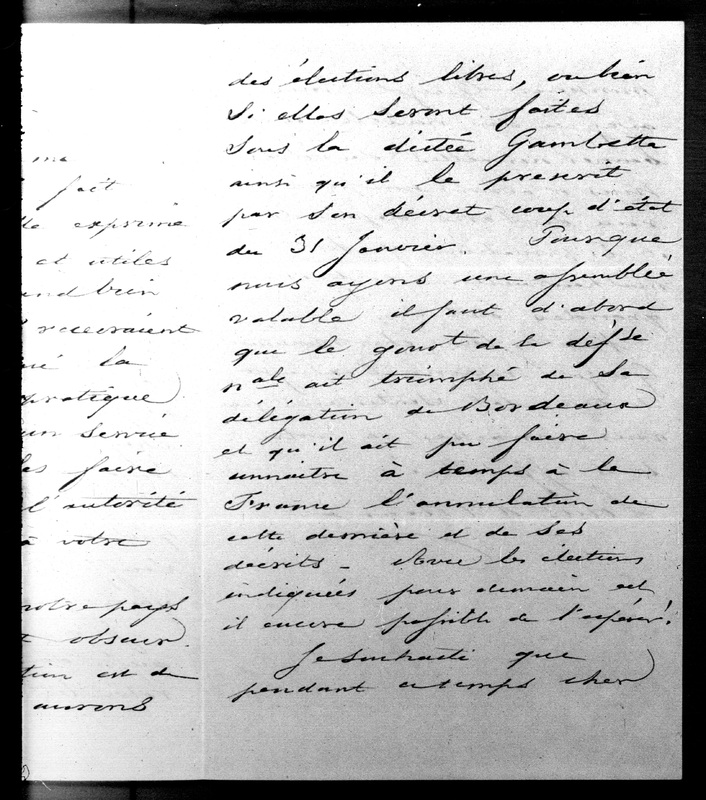 me
fait
exprime
et utiles
bien
recevraient
la
pratique
un service
les faire
l'autorité
à votre
notre pays
obscur.
est de
aurons
des élections libres, ou bien
si elles seront faites
sous la dictée Gambetta
ainsi qu'il le prescrit
par son décret coup d'état
du 31 Janvier. Pour que
nous ayons une assemblée
valable il faut d'abord
que le gouvt de la défse
nale ait triomphé de sa
délégation de Bordeaux
et qu'il ait pu faire
connaitre à temps à la
France l'annulation de
cette dernière et de ses
décrets - Avec les élections
indiquées pour demain est
il encore possible de l'espérer!
Je souhaite que
pendant ce temps cher